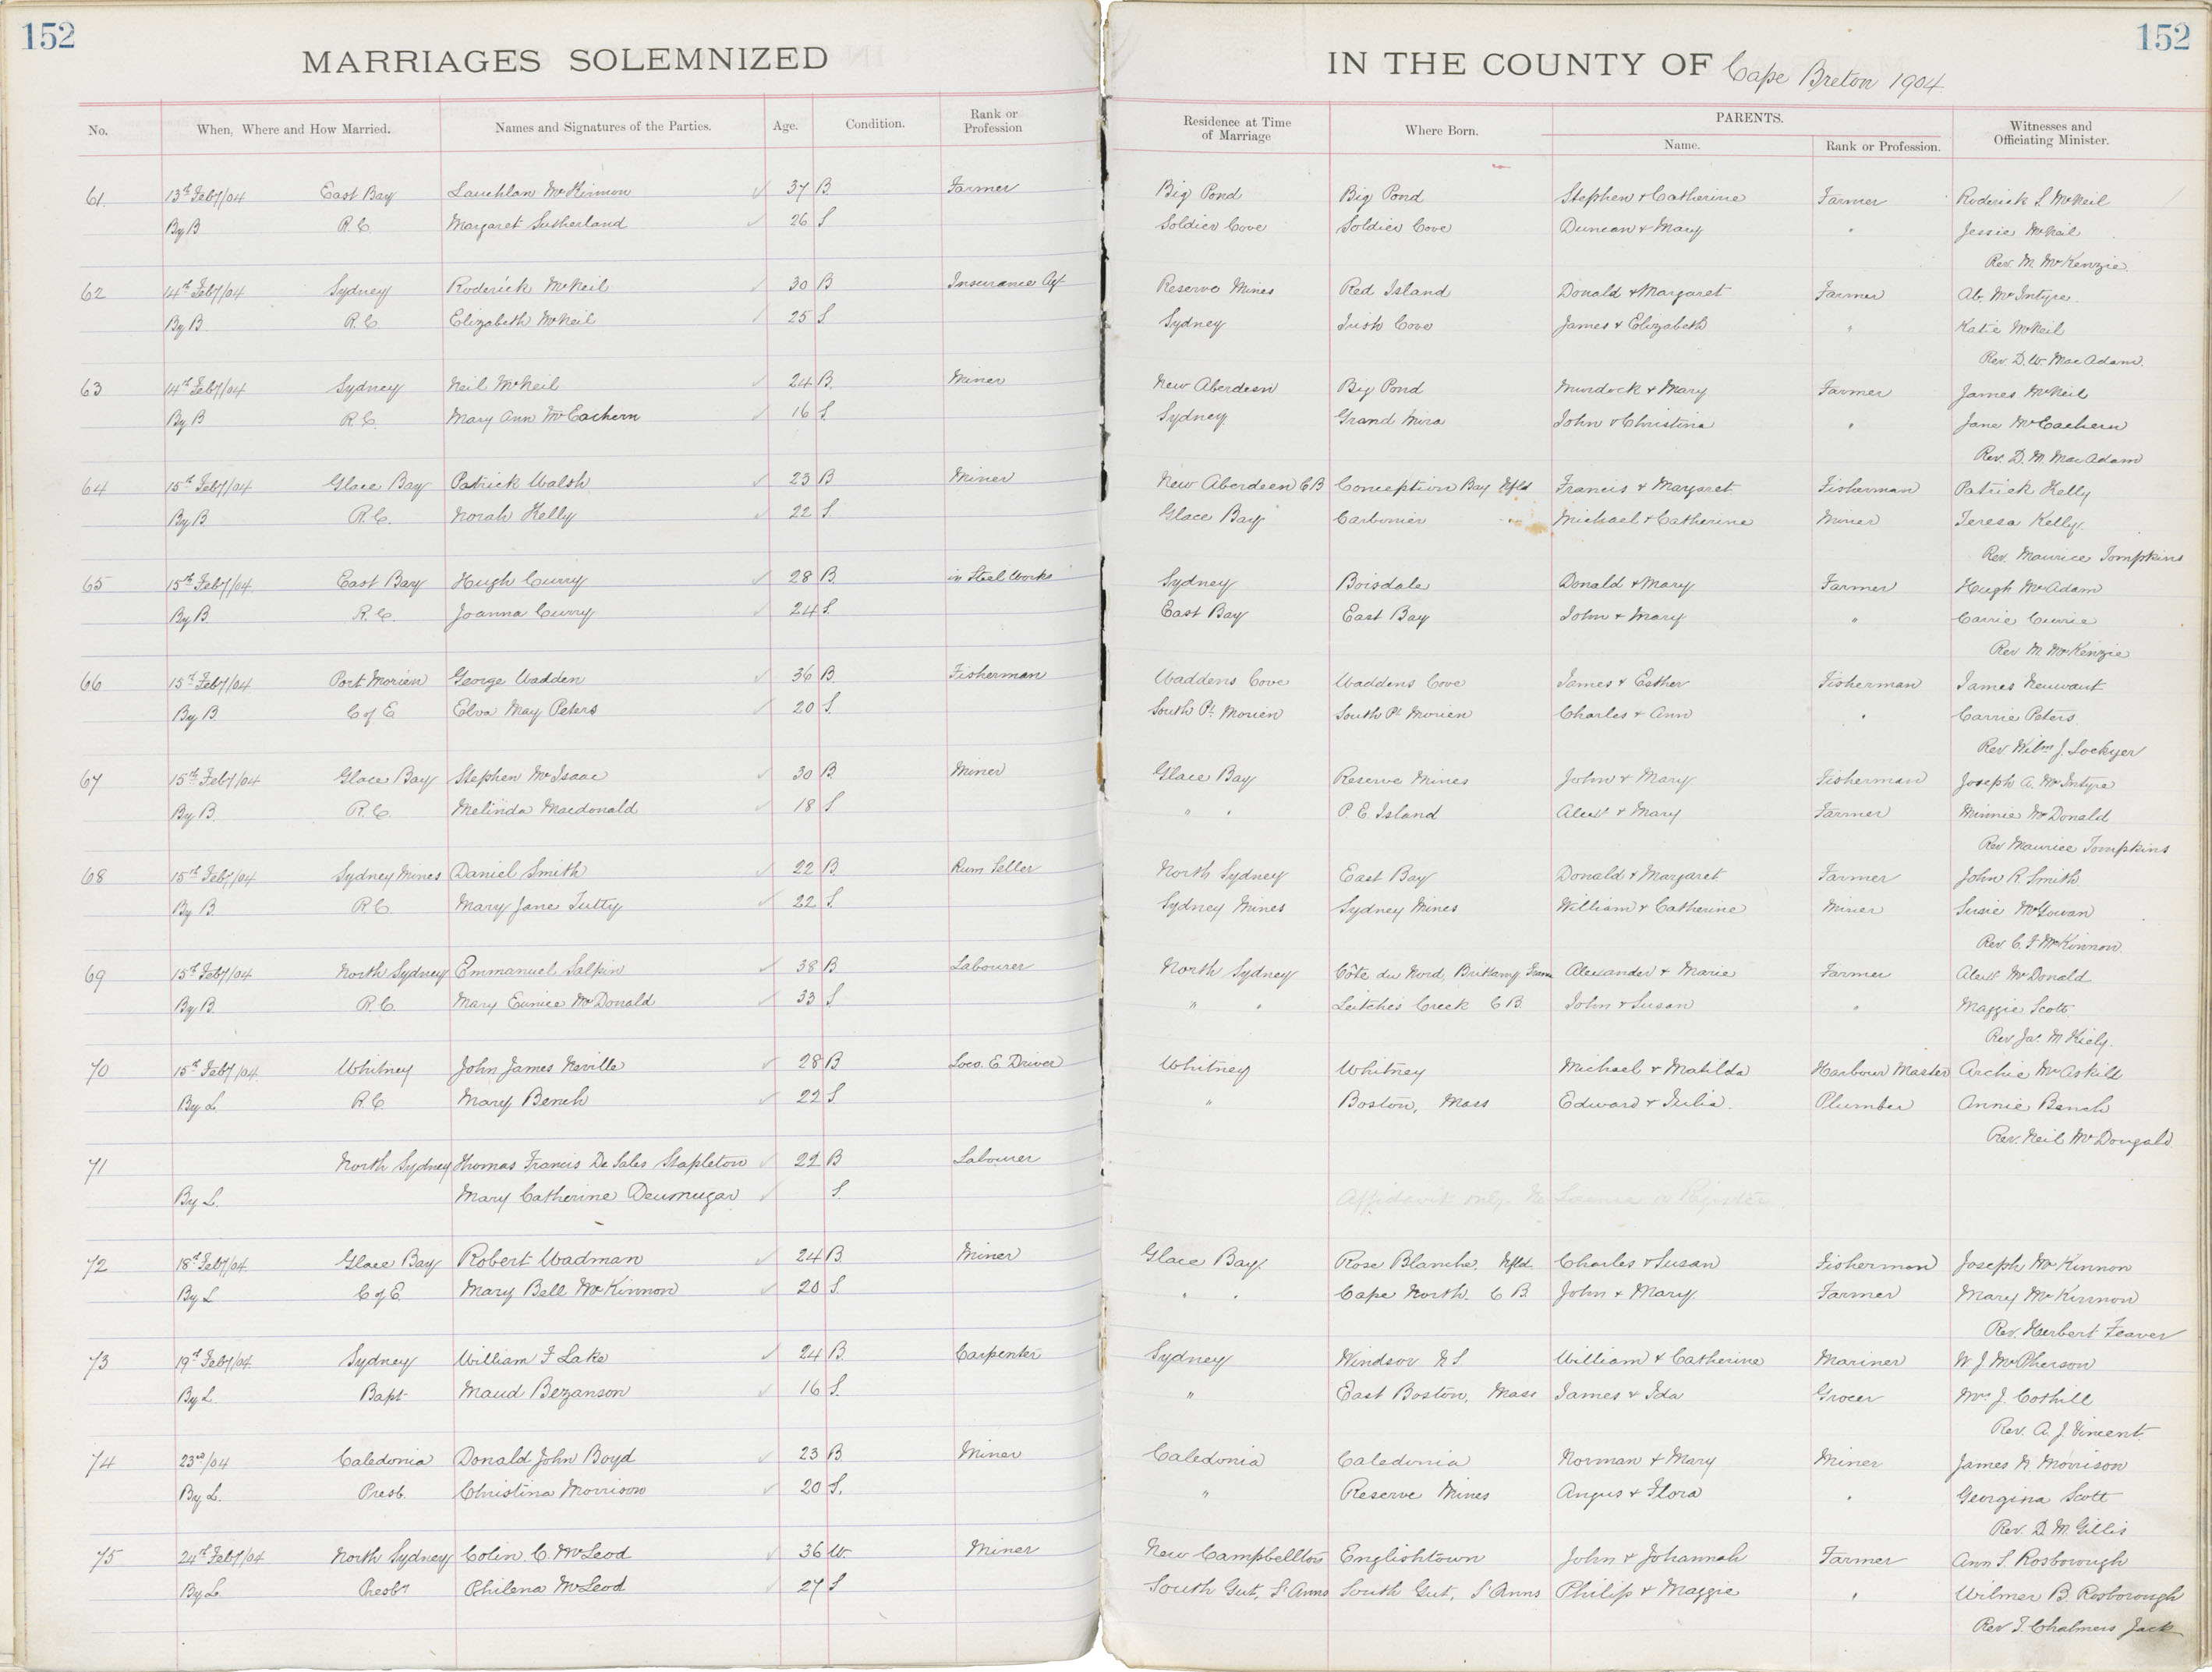 152 152
MARRIAGES SOLEMNIZED IN THE COUNTY OF Cape Breton 1904
No. When, Where and How Married. Names and Signatures of the Parties. Age. Condition. Rank or Profession Residence at Time of Marriage Where Born. PARENTS. Name. Rank or Profession. Witnesses and Officiating Minister.
61. 13th Feby/04 East Bay Lauchlan McKinnon 37 B. Farmer Big Pond Big Pond Stephen & Catherine Farmer Roderick S McNeil
By B R.C Margaret Sutherland 26 S Soldier Cove Soldier Cove Duncan & Mary " Jessie McNeil
Rev. M. McKenzie.
62 14th Feby/04 Sydney Roderick McNeil 30 B Insurance Agt Reserve Mines Red Island Donald & Margaret Farmer Ab. McIntyre
By B R.C. Elizabeth McNeil 25 S. Sydney Irish Cove James & Elizabeth " Katie McNeil
Rev. D. W. MacAdam.
63 14th Feby/04 Sydney Neil McNeil 24 B. Miner New Aberdeen Big Pond Murdock & Mary Farmer James McNeil
By B R.C. Mary Ann McEachern 16 S. Sydney Grand Mira John & Christina " Jane McEachern
Rev. D. M. MacAdam
64 15th Feby/04 Glace Bay Patrick Walsh 23 B Miner New Aberdeen C B Conception Bay Nfld Francis & Margaret Fisherman Patrick Kelly
By B R.C. Norah Kelly 22 S. Glace Bay Carbonier Michael & Catherine Miner Teresa Kelly.
Rev. Maurice Tompkins
65 15th Feby/04. East Bay Hugh Curry 28 B. in Steel Works Sydney Boisdale Donald & Mary Farmer Hugh McAdam
By B. R.C. Joanna Curry 24 S. East Bay East Bay John & Mary " Carrie Currie
Rev M McKenzie
66 15th Feby/04 Port Morien George Wadden 36 B. Fisherman Waddens Cove Waddens Cove James & Esther Fisherman James
By B. C of E Elva May Peters 20 S. South Pt. Morien South Pt Morien Charles & Ann " Carrie Peters
Rev Wilm J. Lockyer
67 15th Feby/04 Glace Bay Stephen McIsaac 30 B. Miner Glace Bay Reserve Mines John & Mary Fisherman Joseph A. McIntyre
By B. R.C. Melinda Macdonald 18 S " " P. E. Island Alexr & Mary Farmer Minnie McDonald
Rev Maurice Tompkins
68 15th Feby/04 Sydney Mines Daniel Smith 22 B. Rum Seller North Sydney East Bay Donald & Margaret Farmer John R. Smith
By B. R.C. Mary Jane Tutty 22 S. Sydney Mines Sydney Mines William & Catherine Miner Susie McGowan
Rev C. F McKinnon
69 15th Feby/04 North Sydney Emmanuel Salkin 38 B Labourer North Sydney Côte du Nord, Brittany France Alexander & Marie Farmer Alexr McDonald
By B. R.C. Mary Eunice McDonald 33 S " " Leitches Creek C B. John & Susan " Maggie Scott
Rev Jas. M Kiely.
70 15th Feby/04. Whitney John James Neville 28 B Loco. E. Driver Whitney Whitney Michael & Matilda Harbour Master Archie McAskill
By L R.C Mary Bench 22 S " Boston, Mass Edward & Julia. Plumber Annie Bench
Rev. Neil McDougald
71 North Sydney Thomas Francis De Sales Stapleton 22 B Labourer
By L. Mary Catherine S. Affidavit only. No License or Register.
72 18th Feby/04 Glace Bay Robert Wadman 24 B. Miner Glace Bay Rose Blanche, Nfld. Charles & Susan Fisherman Joseph McKinnon
By L C of E. Mary Bell McKinnon 20 S. " " Cape North. C B. John & Mary Farmer Mary McKinnon
Rev. Herbert Feaver
73 19th Feby/04 Sydney William F Lake 24 B. Carpenter Sydney Windsor N S. William & Catherine Mariner W J McPherson
By L Bapt. Maud Bezanson 16 S. " East Boston, Mass James & Ida Grocer Mrs J. Cothill
Rev. A. J. Vincent.
74 23rd/04 Caledonia Donald John Boyd 23 B. Miner Caledonia Caledonia Norman & Mary Miner James N. Morrison
By L. Presb. Christina Morrison 20 S. " Reserve Mines Angus & Flora " Georgina Scott
Rev. D. M Gillis
75 24th Feby/04 North Sydney Colin C. McLeod 36 W. Miner New Campbellton Englishtown John & Johannah Farmer Ann S. Rosborough
By L Presbn Philena McLeod 27 S South Gut, St Anns South Gut, St Anns Philip & Maggie " Wilmer B. Rosborough
Rev T. Chalmers Jack